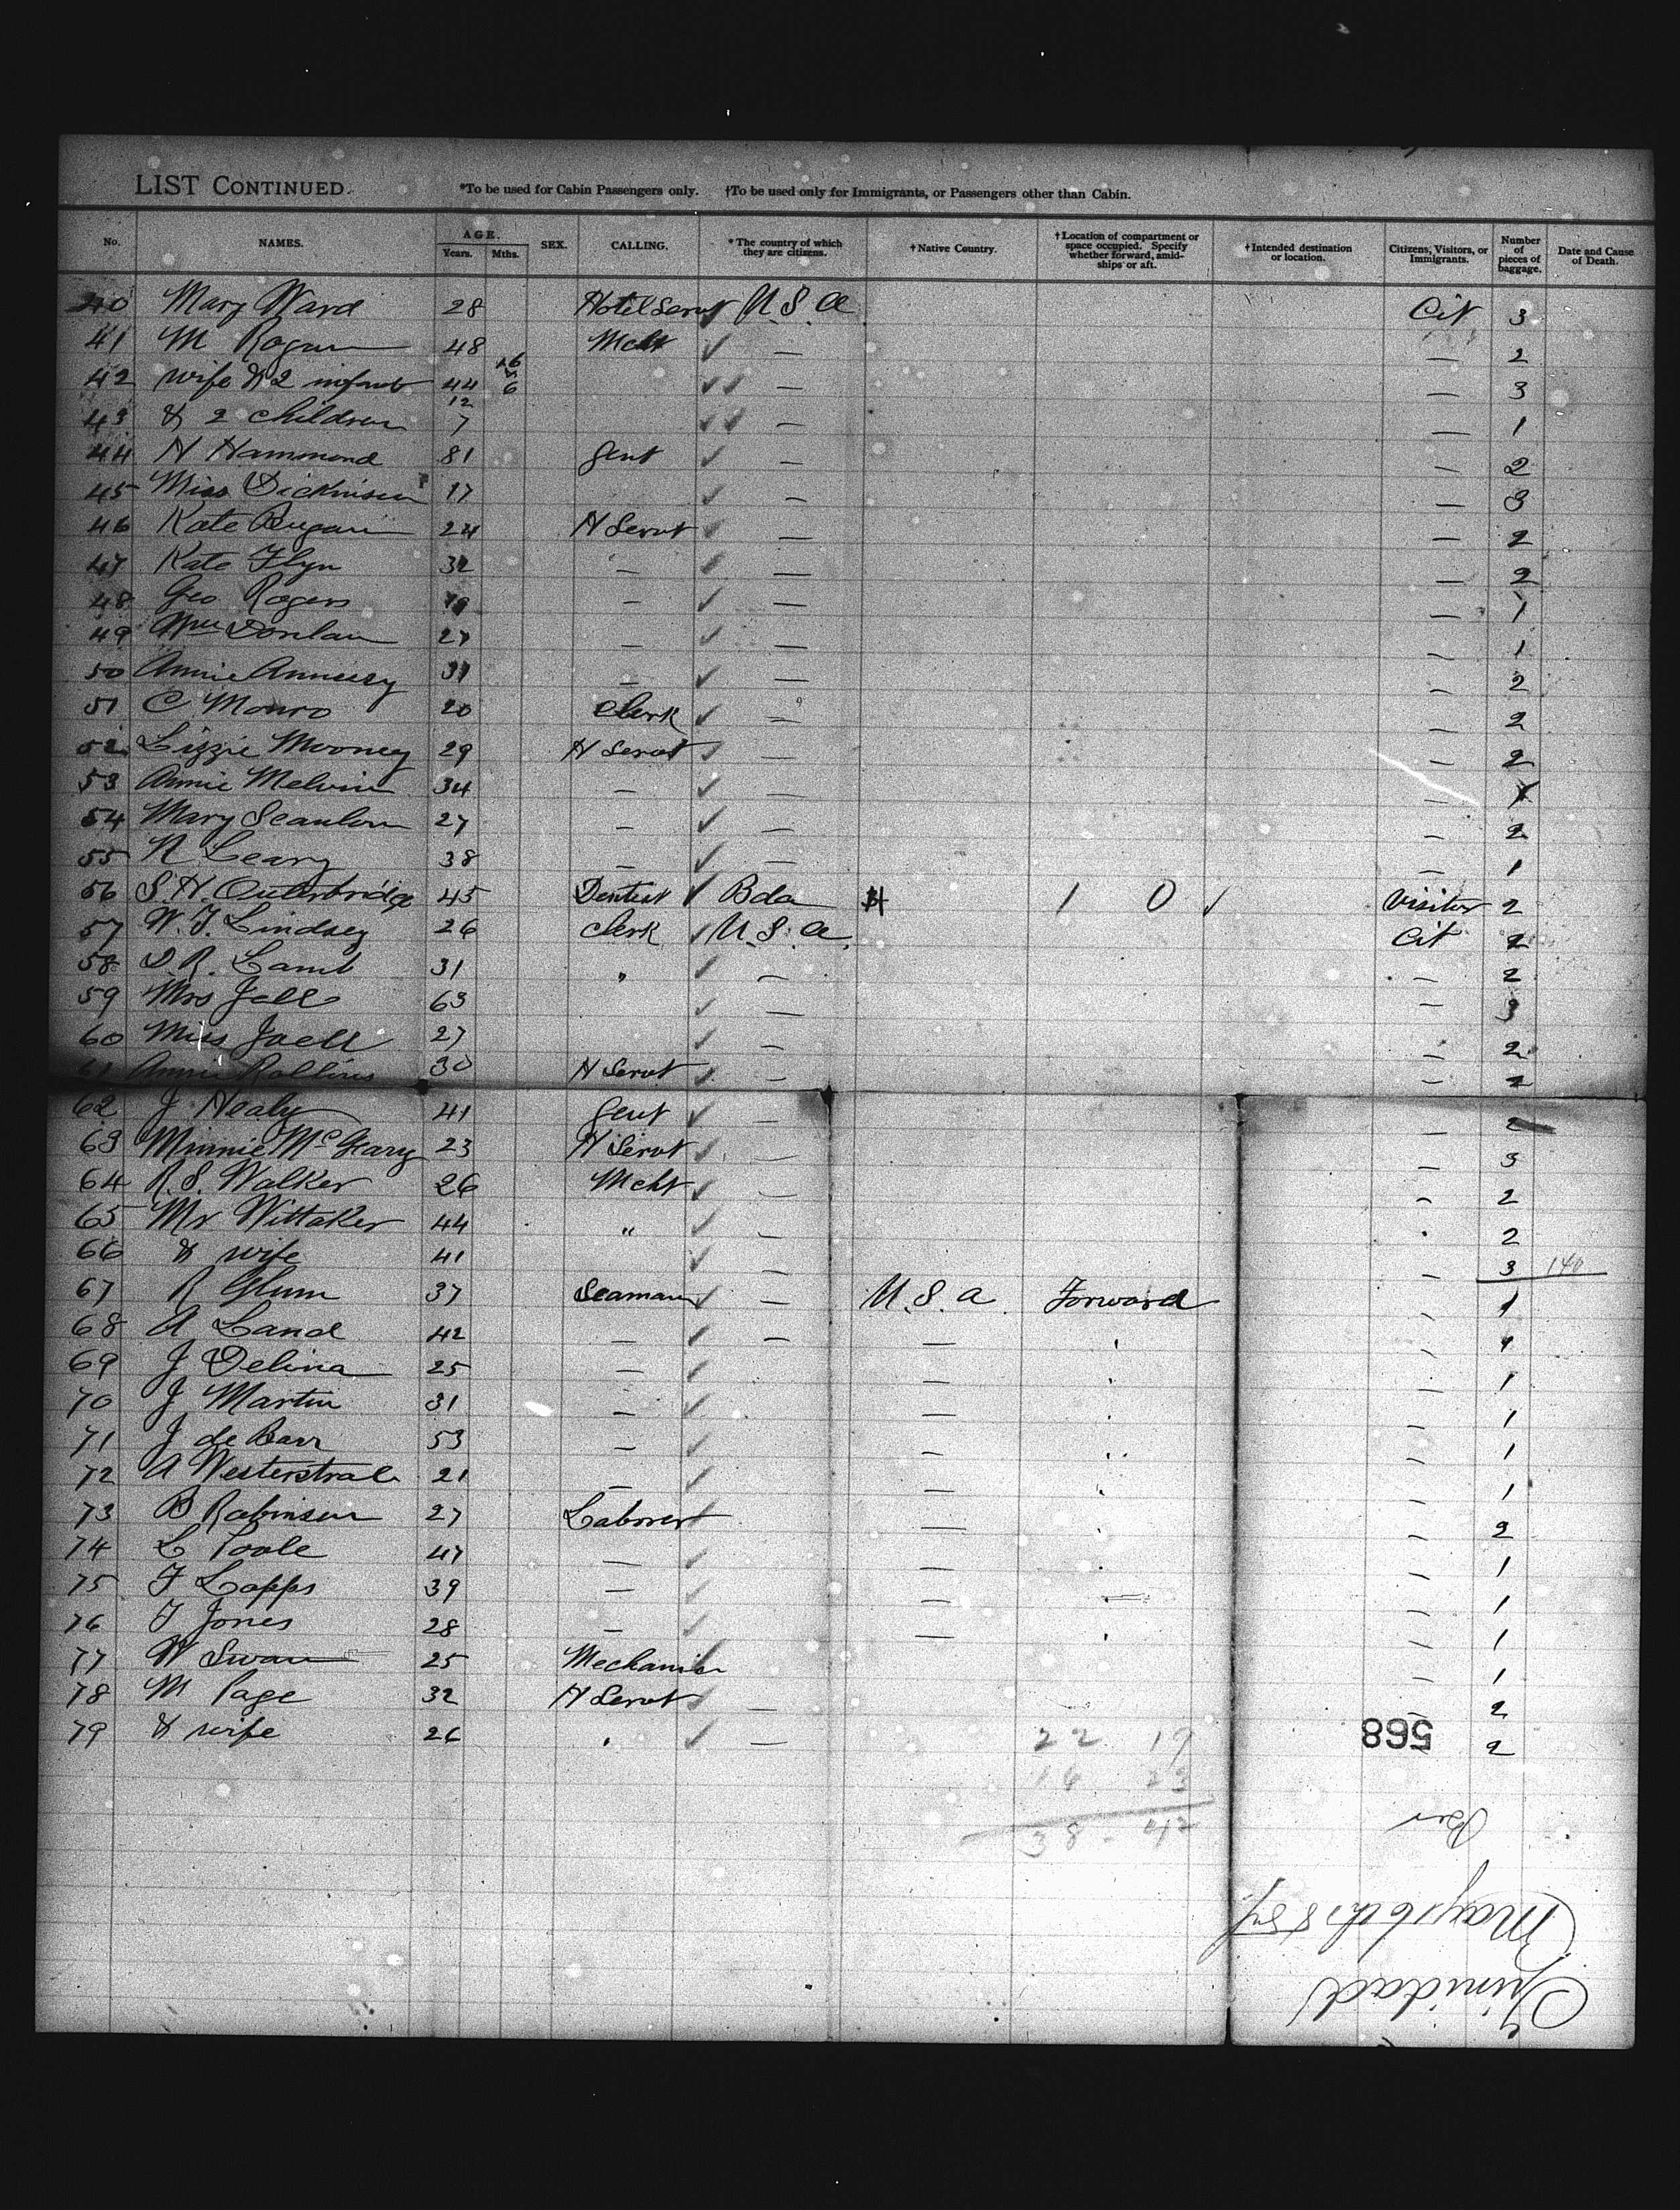 LIST CONTINUED. *To be used for Cabin Passengers only. †To be used only for Immigrants, or Passengers other than Cabin.
No. NAMES. AGE. Years. Mths. SEX. CALLING. *The country of which they are citizens. †Native Country. †Location of compartment or space occupied. Specify whether forward, amidships or aft. †Intended destination or location. Citizens, Visitors, or Immigrants. Number of pieces of baggage. Date and Cause of Death.
40 Mary Ward 28 Hotel Servt U.S.a Cit 3
41 M Rogan 48 Mcht ✓ — — 2
42 wife & 2 infants 44 6 ✓✓ — — 3
43 & 2 children 12 7 ✓✓ — — 1
44 H Hammond 81 Gent ✓ — — 2
45 Miss Dickinson 17 ✓ — — 3
46 Kate 24 H Servt ✓ — — 2
47 Kate Flyn 32 — ✓ — — 2
48 Geo Rogers — ✓ — — 1
49 Wm Donlan 27 — ✓ — — 1
50 Annie 31 — ✓ — — 2
51 C Monro 20 Clerk ✓ — — 2
52 Lizzie Mooney 29 H Servt ✓ — — 2
53 Annie Melvin 34 — ✓ — —
54 Mary Scanlon 27 — ✓ — — 2
55 N Leary 38 — ✓ — — 1
56 S.H. Outerbridge 45 Dentist ✓ Bda 1 0 ✓ Visitor 2
57 W.J. Lindsey 26 Clerk ✓ U.S.a. Cit 2
58 D R. Lamb 31 " ✓ — — 2
59 Mrs Jall 63 ✓ — — 3
60 Miss Jaell 27 ✓ — — 2
61 Annie Rollins 30 H Servt ✓ — — 2
62 J Healy 41 Gent ✓ — — 2
63 Minnie McGeary 23 H Servt ✓ — — 3
64 R.S. Walker 26 Mcht ✓ — — 2
65 Mr Wittaker 44 " ✓ — 2
66 & wife 41 ✓ — — 3 140
67 R Glum 37 Seaman ✓ — U.S.a Forward 1
68 A Land 42 — ✓ — — " — 1
69 J Delina 25 — ✓ — " — 1
70 J Martin 31 — ✓ — " — 1
71 J de Barr 53 — ✓ — " — 1
72 A Westerstrale 21 — ✓ — " — 1
73 B Robinson 27 Laborer ✓ — " — 2
74 L Poole 47 — ✓ — " — 1
75 F Lapps 39 — ✓ — " — 1
76 T Jones 28 — ✓ — " — 1
77 W Swan 25 Mechanic ✓ — 1
78 M Page 32 H Servt ✓ — — 2
79 & wife 26 " ✓ — 2
22 19
16 23
38 - 42
568
Trinidad
May 16th 1887